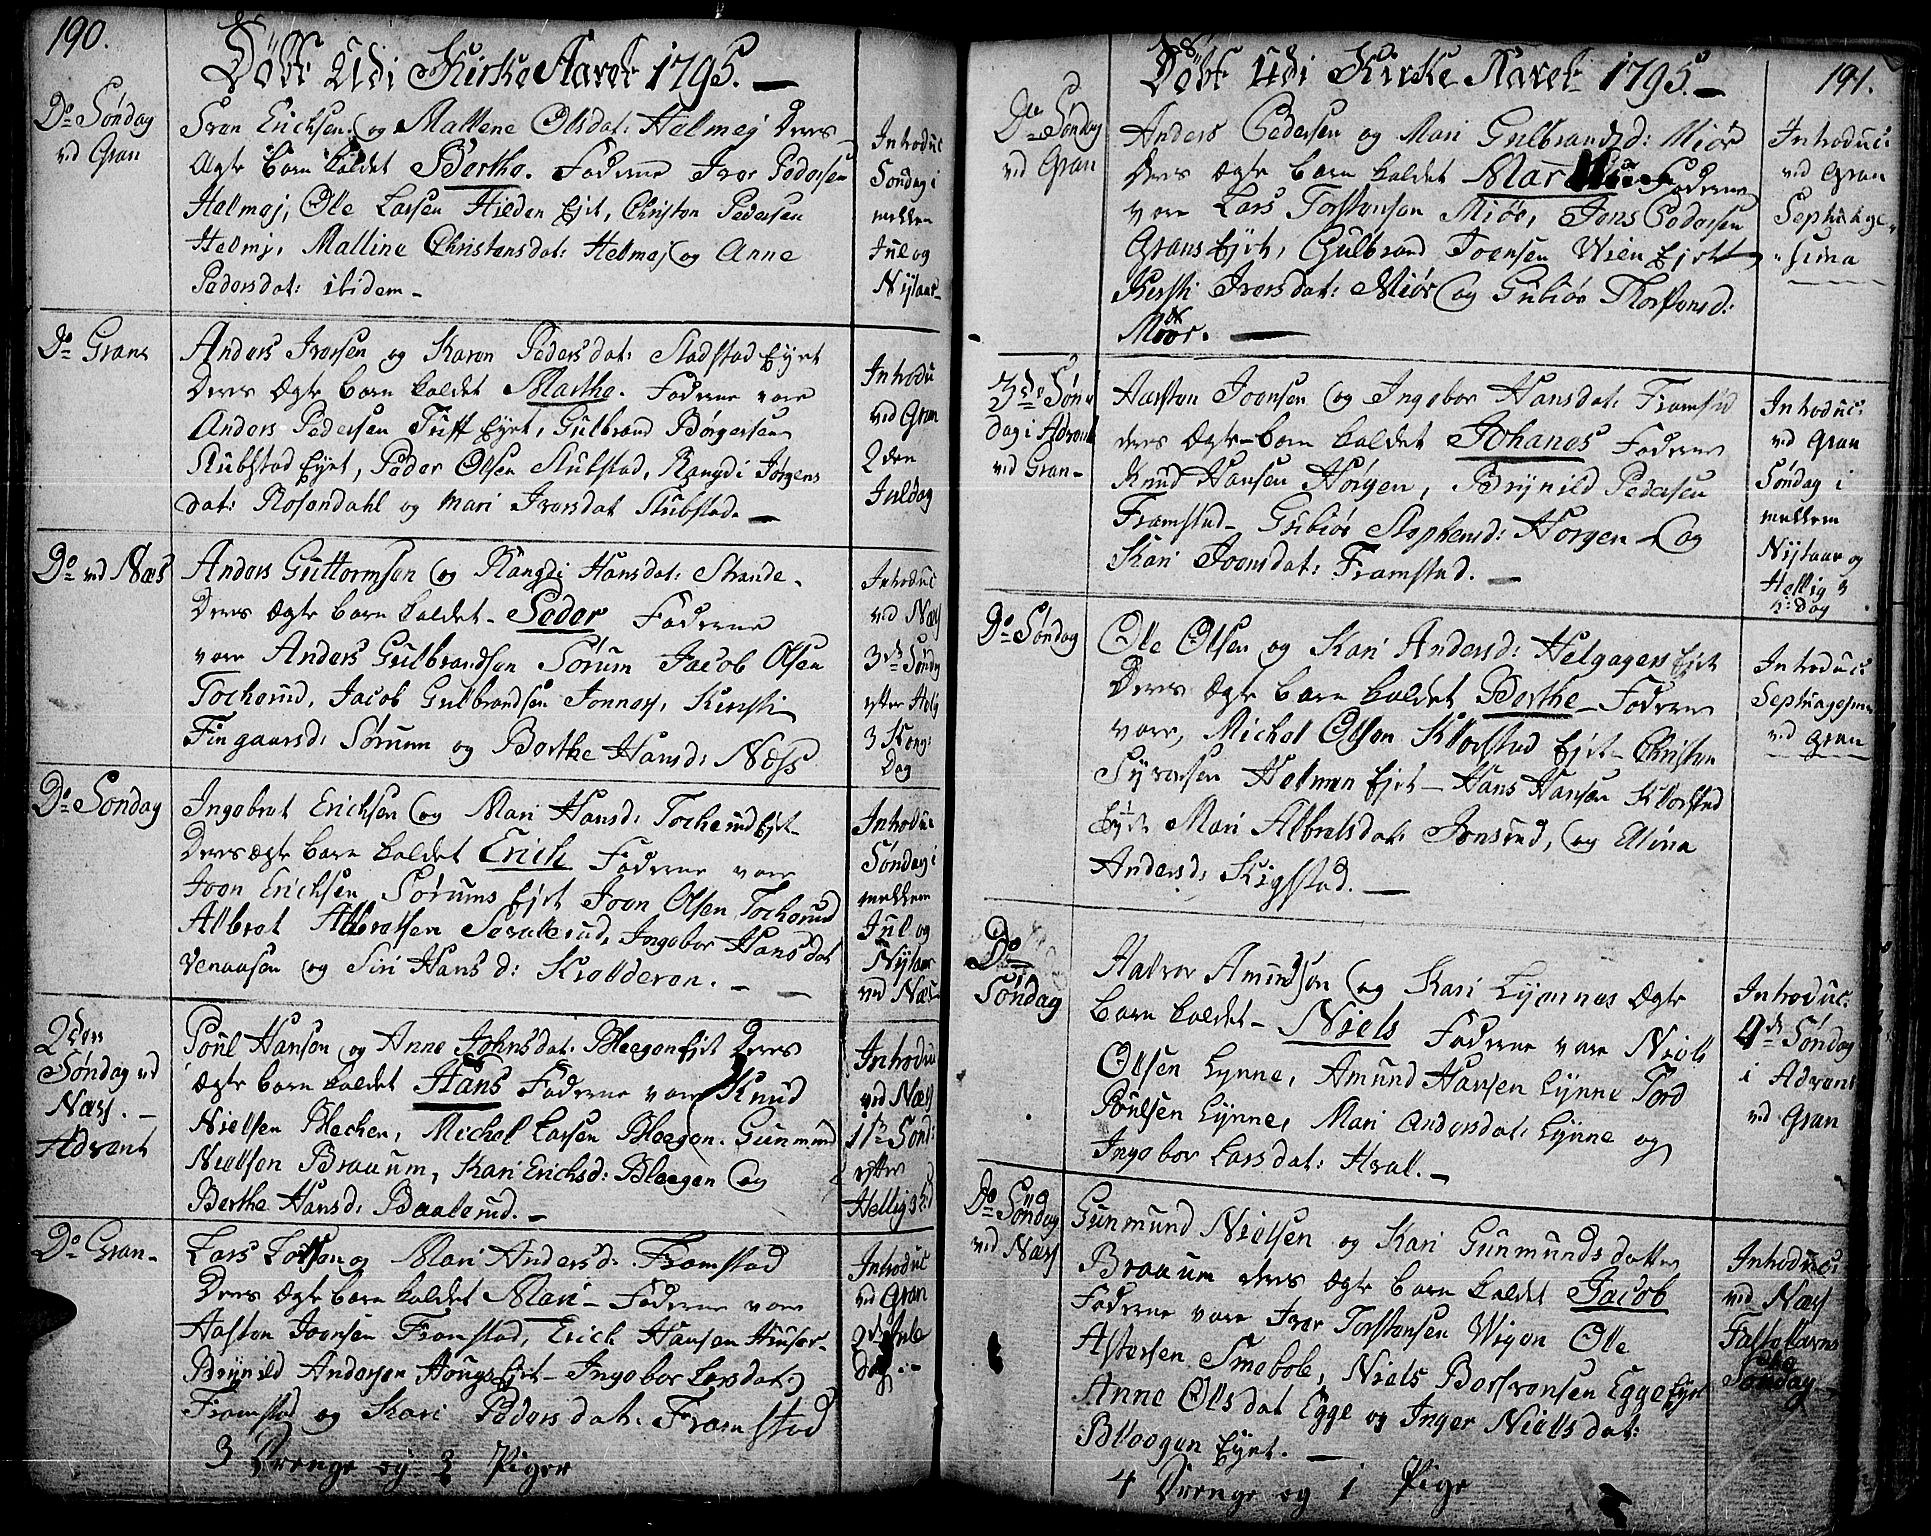 190.
Döbt Udi Kirke Aaret 1795. —
Do Søndag
vid Gran
Iver Erichsen og Mallene Olsdat: Halmej Deres
Ægte barn kaldet Berthe. Faderne Iver Pedersen
Halmej, Ole Larsen Hilden Ejet, Christen Pedersen
Helmej, Malline Christensdat: Helmej og Anne
Pedersdat: ibidem —
Introduc
Søndag i
mellem
Jul og
Nytaar
Do Gran
Anders Iversen og Karen Pedersdat: Stadstad Eyet
Deres Ægte barn kaldet Marthe. Faderne vare
Anders Pedersen Tuff Eyet, Gulbrand Børgersen
Stubstad Eyet, Peder Olsen Stubstad, Rangdi Jørgens
dat: Rosendahl og Mari Iversdat Stubstad. —
Introdu
vid Gran
2den
Juledag
Do vid Næs
Anders Guttormsen og Rangdi Hansdat: Strande.
Deres Ægte barn kaldet — Peder Faderne
vare Anders Gulbrandsen Sørum Jacob Olsen
Tocherud, Jacob Gulbrandsen Jonnes, Kirsti
Fingaarsd: Sørum og Berthe Hansd: Næss
Introduc
vid Næs
3de Søndag
efter Hellig
3 Kong:
Dag
Do Søndag
Ingebret Erichsen og Mari Hansd: Tocherud Ejet
Deres ægte barn kaldet Erich Faderne vare
Joen Erichsen Sørums Ejet Joen Olsen Tocherud
Albret Albretsen Sevallerud, Ingebor Hansdat
Venaasen og Siri Hansd: Krøderen. —
Introduc
Søndag i
mellem
Jul og
Nytaar
vid Næs
2den
Søndag vid
Næss. —
Advent
Poul Hansen og Anne Johnsdat: Blegen Ejet Deres
Ægte barn kaldet Hans Faderne vare Knud
Nielsen Blechen, Michel Larsen Bleegen. Gunmund
Nielsen Braaum, Kari Erichsd: Bleegen og
Berthe Hansd: Baalerud. —
Introduc
vid Næss
1ste Sønd:
efter
Hellig 3 K: D
Do Gran —
Lars Larsen og Mari Andersd: Framstad
Deres Ægte barn kaldet Mari — Faderne vare
Aasten Joensen Framstad, Erich Hansen Huser
Brynild Andersen Hougs Ejet — Ingebor Larsdat:
Framstad og Kari Pedersdat: Framstad
Introduc
vid Gran
2de Jule
dag. —
3 Drenge og 3 Piger
191.
Døbt Udi Kirke Aaret 1795. —
Do Søndag
vid Gran
Anders Pedersen og Mari Gulbrandsd: Miør
Deres Ægte barn kaldet Mar Faderne
vare Lars Torstensen Miør, Jens Pedersen
Grans Ejet, Gulbrand Joensen Wien Ejet
Kirsti Iversdat: Miør og Gubiør Thorstensd:
Miør. —
Introduc:
vid Gran
Septuage
sima
3de Søn
dag i Advent
vid Gran —
Aasten Joensen og Ingebor Hansdat: Framstad
deres Ægte barn kaldet Johanes Faderne
Knud Hansen Hørgen, Brynild Pedersen
Framstad — Gubiør Stephensd: Horgen — og
Kari Joensdat: Framstad. —
Introduc:
vid Gran
Søndag i
mellem
Nytaar og
Hellig 3
K: Dag
Do Søndag
Ole Olsen og Kari Andersd: Helgagers Ejet
Deres Ægte barn kaldet Berthe — Faderne
vare, Michel Olsen Klæstad Ejet — Christen
Syversen Halmen Ejet — Hans Hansen Klæstad
Eyet Mari Albretsdat: Jonsrud, og Eline
Andersd: Kigstad. —
Introduc:
Septuagesima
vid Gran
Do
Søndag
Halvor Amundsen og Kari Lynnes Ægte
barn kaldet — Niels Faderne vare Niels
Olsen Lynne, Amund Hansen Lynne Tord
Poulsen Lynne, Mari Andersdat: Lynne og
Ingebor Larsdat: Hval. —
Introduc:
4de Søndag
i Advent
vid Gran
Do Søndag
vid Næss
Gunmund Nielsen og Kari Gunmunds datter
Braaum deres Ægte barn kaldet Jacob
Faderne vare Iver Torstensen Wigen Ole
Astersen Smebøle, Niels Bostvensen Egge Ejet
Anne Olsdat Egge og Inger Nielsdat:
Bleegen Eyet. —
Introduc:
vid Næss
Fastelavns
Søndag
4 Drenge og 1 Pige